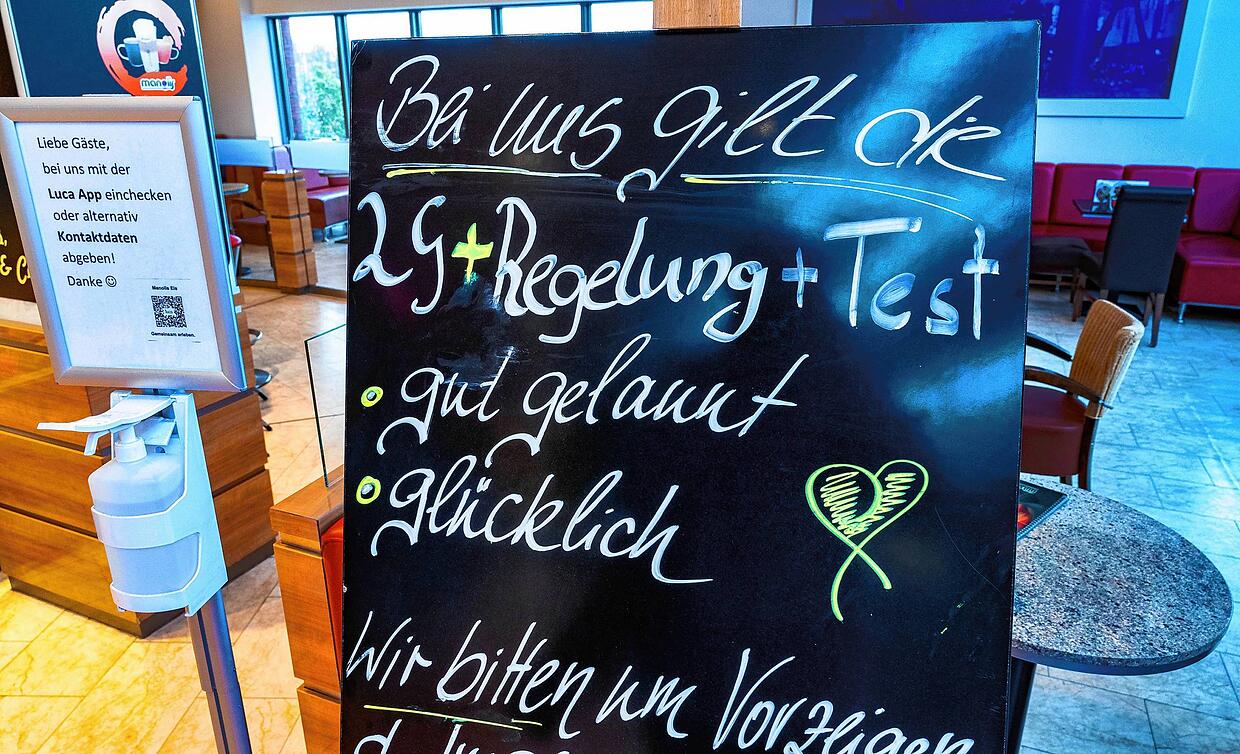 manolis
Liebe Gäste,
bei uns mit der
Luca App einchecken
oder alternativ
Kontaktdaten
abgeben!
Danke ☺
Manolis Eis
Gemeinsam erleben.
& C
Bei uns gilt die
2G + Regelung + Test
• gut gelaunt
• glücklich
Wir bitten um Vorzeigen